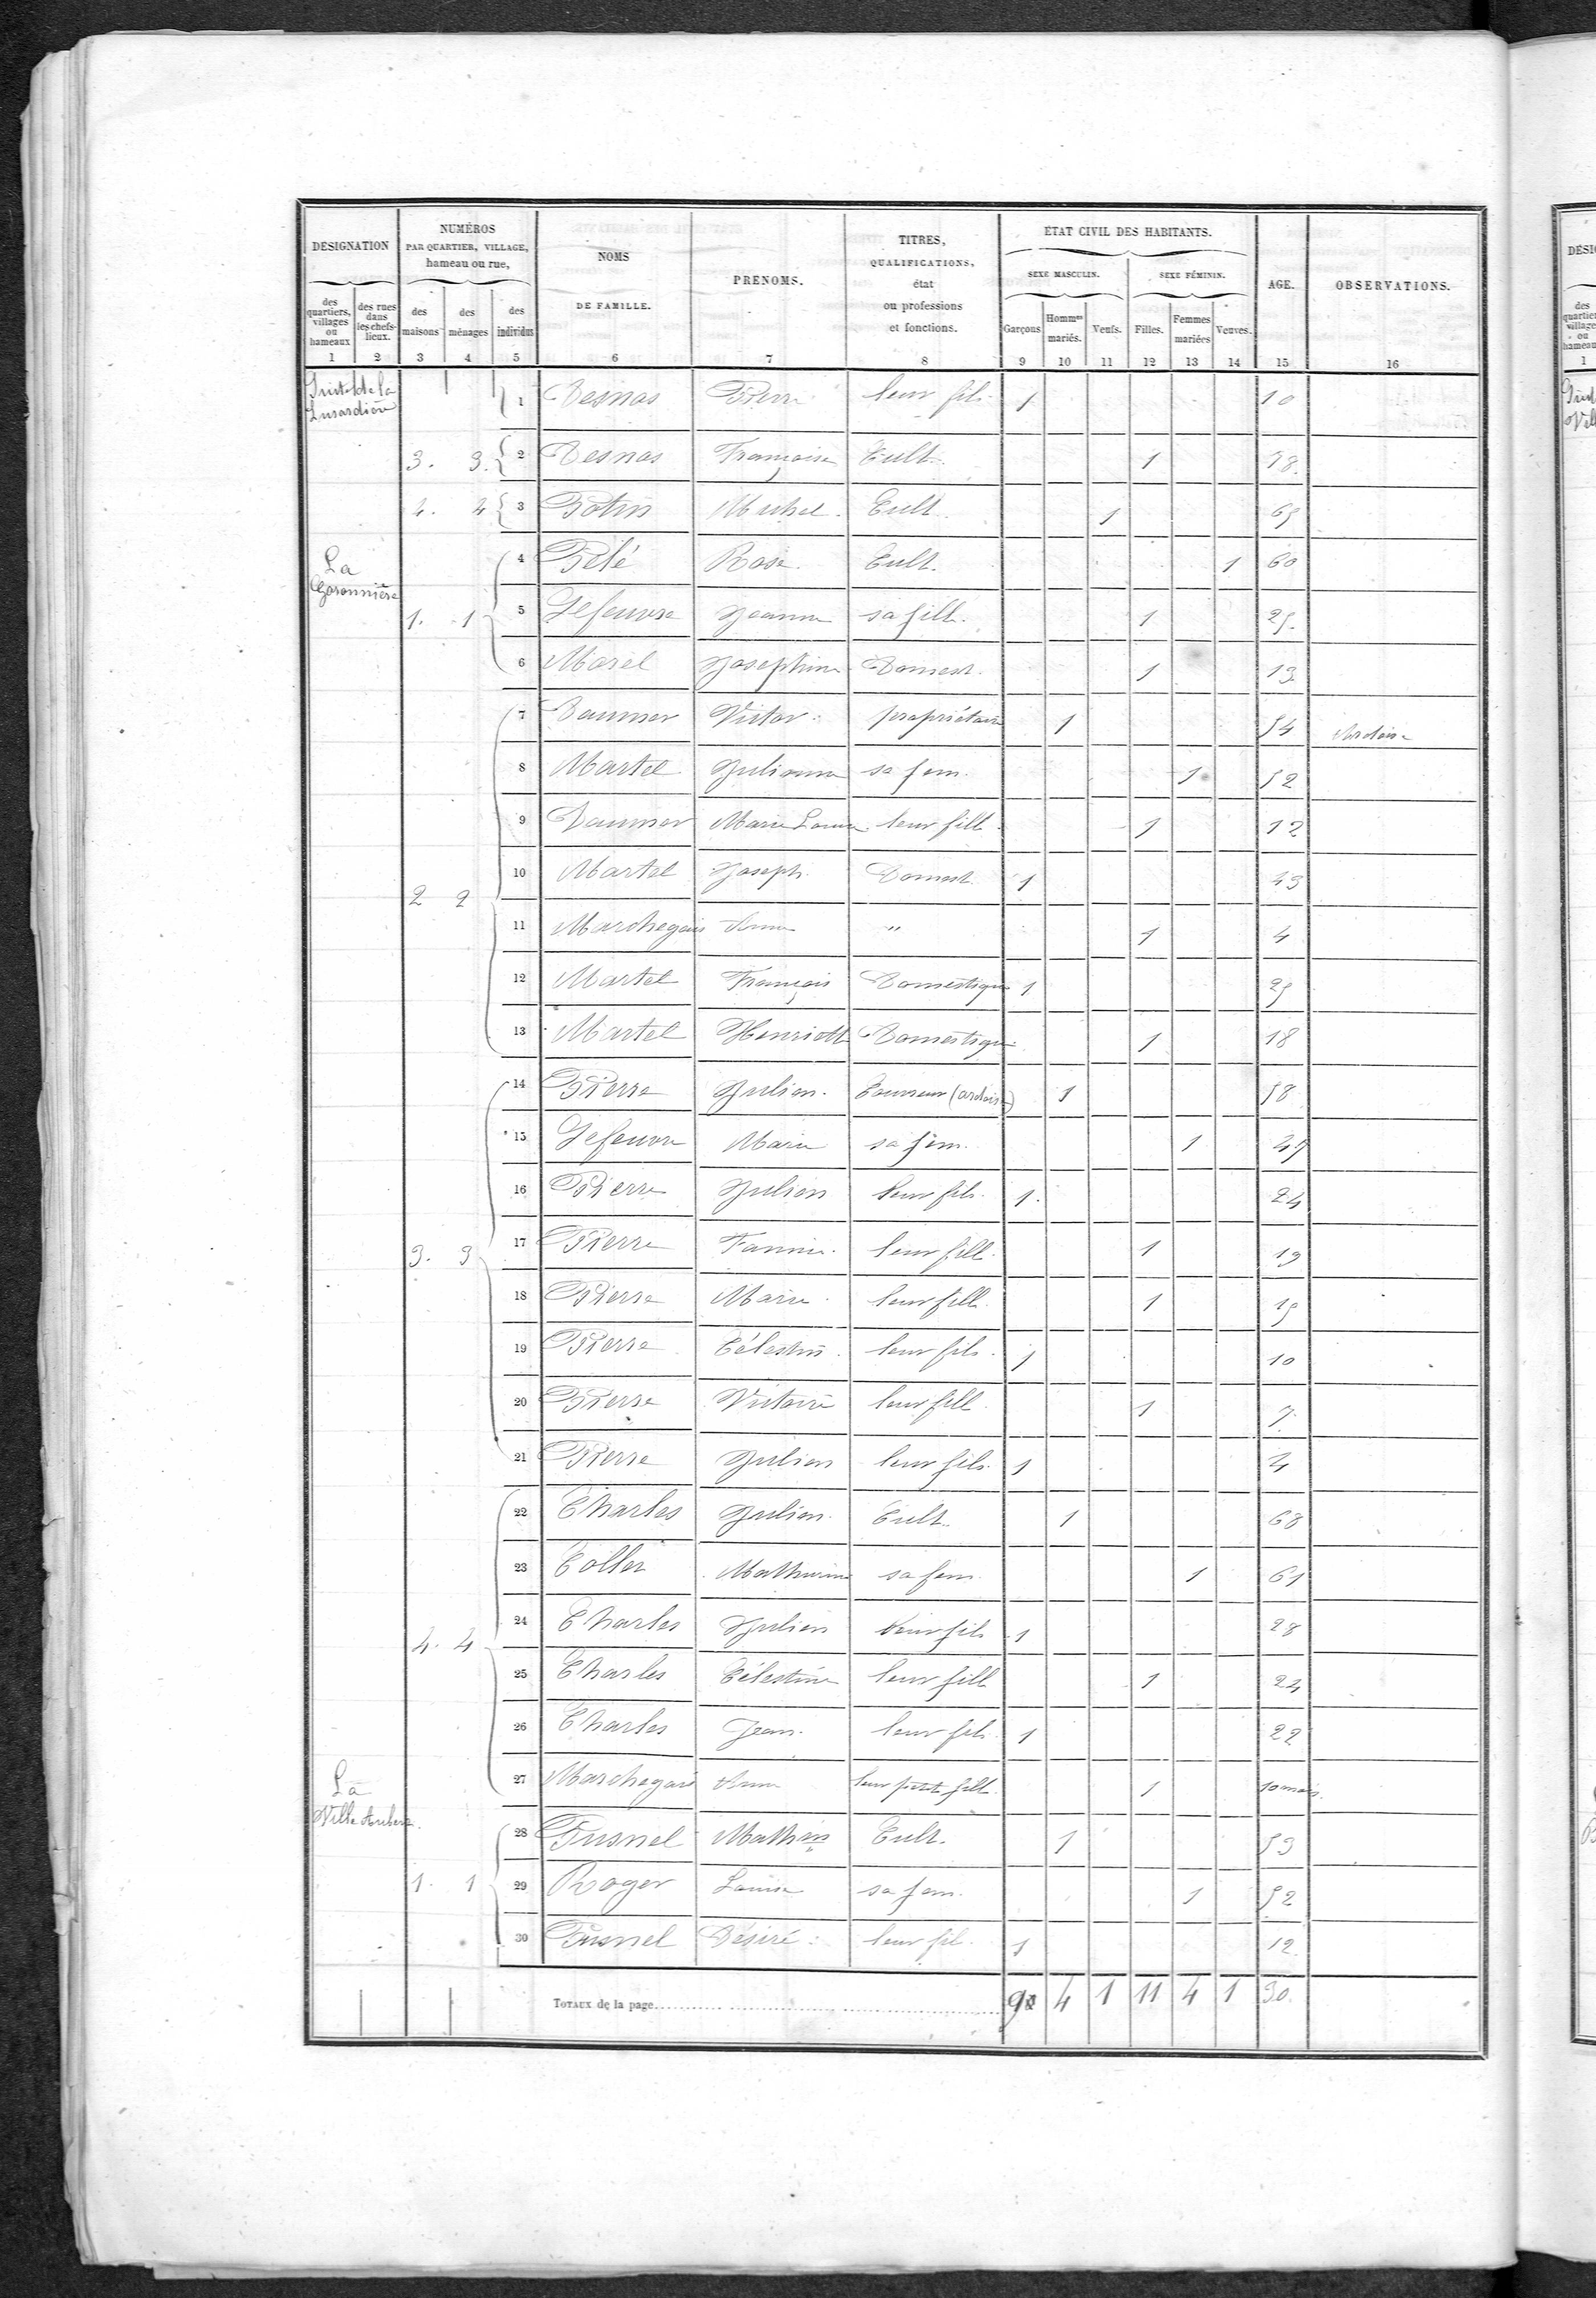 DÉSIGNATION
NUMÉROS PAR QUARTIER, VILLAGE, hameau ou rue,
NOMS DE FAMILLE.
PRÉNOMS.
TITRES, QUALIFICATIONS, état ou professions et fonctions.
ÉTAT CIVIL DES HABITANTS.
SEXE MASCULIN.
SEXE FÉMININ.
AGE.
OBSERVATIONS.
des quartiers, villages ou hameaux
des rues dans les chefs-lieux.
des maisons
des ménages
des individus
Garçons
Hommes mariés.
Veufs.
Filles.
Femmes mariées
Veuves.
1 2 3 4 5 6 7 8 9 10 11 12 13 14 15 16
1 Desnos Pierre leur fils 1 10
3. 3. 2 Desnos Françoise Cult. 1 18
4. 4 3 Potin Michel Cult. 1 65
La
4 Pelé Rose Cult. 1 60
1. 1 5 Lefeuvre Jeanne sa fille. 1 25
6 Morel Josephine Domest. 1 13
7 Daumer Victor propriétaire 1 54 Ardoise
8 Martel Julienne sa fem. 1 52
9 Daumer Marie Louise leur fille 1 12
10 Martel Joseph Domest. 1 43
2 2
11 Marchegais Anna " 1 4
12 Martel François Domestique 1 25
13 Martel Henriette Domestique 1 18
14 Pierre Julien (ardoise) 1 58
15 Lefeuvre Marie sa fem. 1 47
16 Pierre Julien leur fils. 1. 24
3. 3 17 Pierre Fannie leur fille 1 19
18 Pierre Marie leur fille 1 15
19 Pierre Célestin leur fils 1 10
20 Pierre Victoire leur fille 1 7
21 Pierre Julien leur fils 1 4
22 Charles Julien Cult. 1 68
23 Collet Mathurine sa fem. 1 61
24 Charles Julien leur fils 1 28
4. 4
25 Charles Célestine leur fille 1 24
26 Charles Jean leur fils 1 22
27 Marchegais Anna leur petite fille 1 10 mois.
La
Ville
28 Fusnel Mathin Cult. 1 53
1. 1 29 Roger Louise sa fem. 1 52
30 Fusnel Désiré leur fil. 1 12
TOTAUX de la page 9 4 1 11 4 1 30